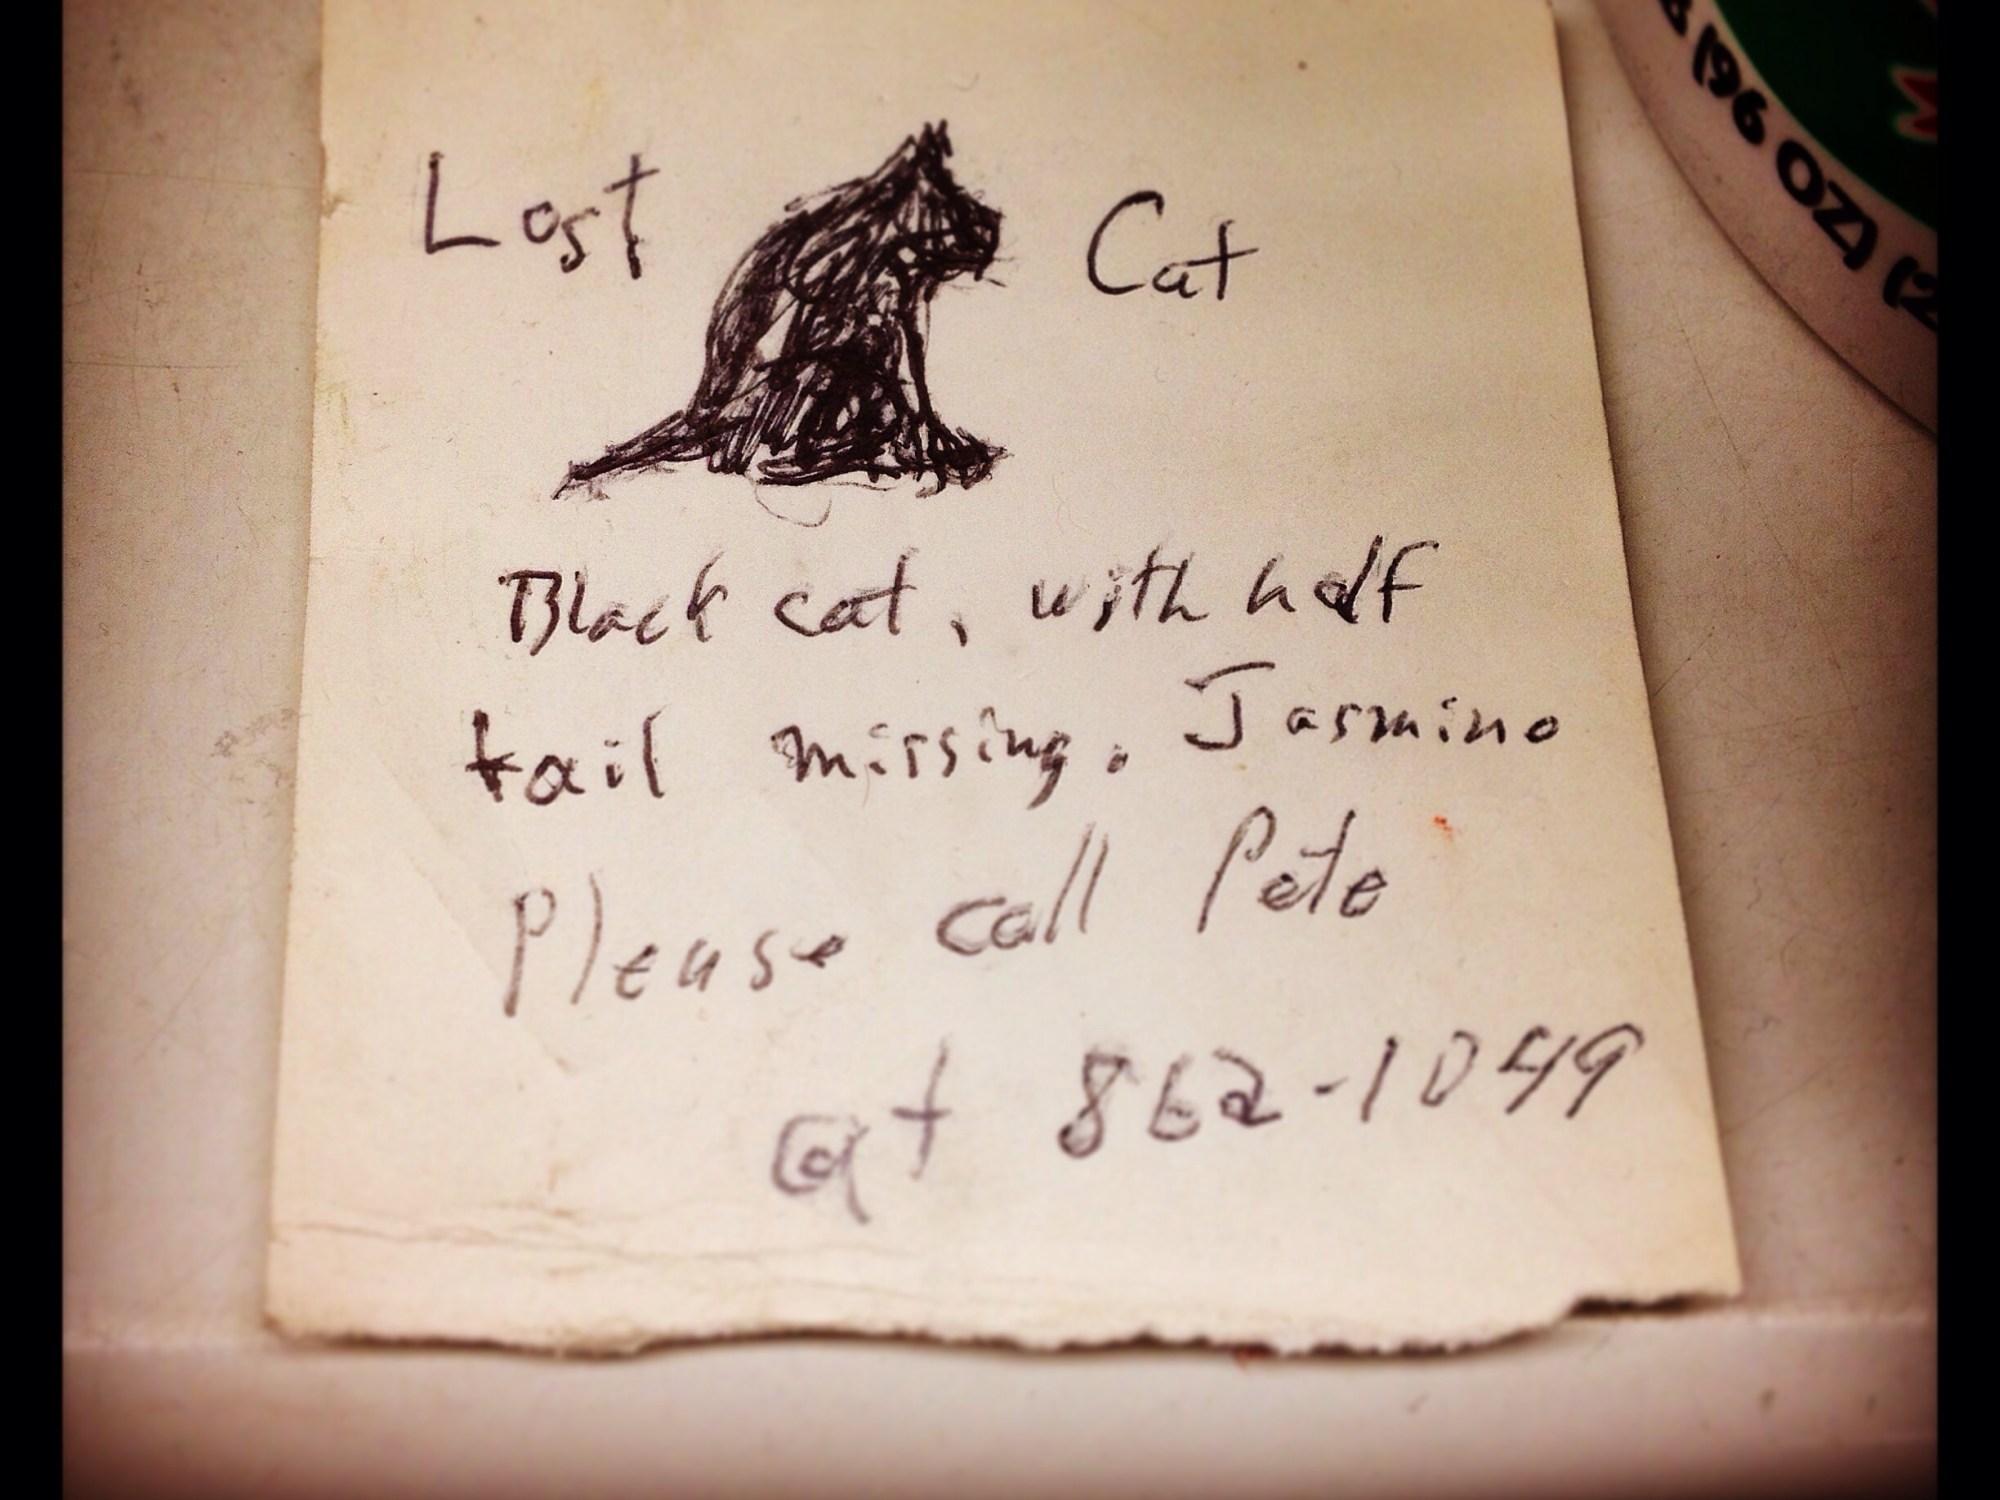 Lost Cat
Black cat, with half
tail missing. Jasmine
Please call Pete
at 862-1049
(96 OZ) (2